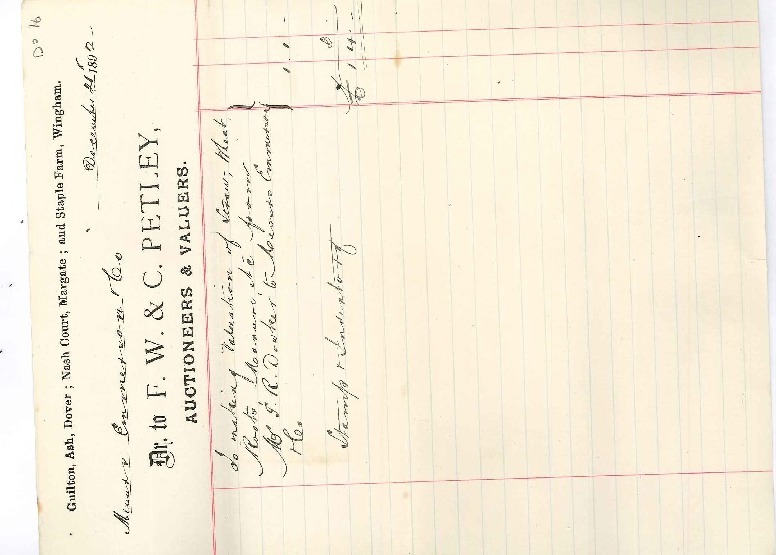 Do 16
Guilton, Ash, Dover; Nash Court, Margate; and Staple Farm, Wingham.
December 1892
Messrs & Co
Dr. to F. W. & C. PETLEY,
AUCTIONEERS & VALUERS.
To making Valuation of Straw, Wheat
Roots, Manure, &c from
Mr J. R. Dowker to Messrs
& Co 1 . 1 . -
Stamp
£ 1 . 4 . -